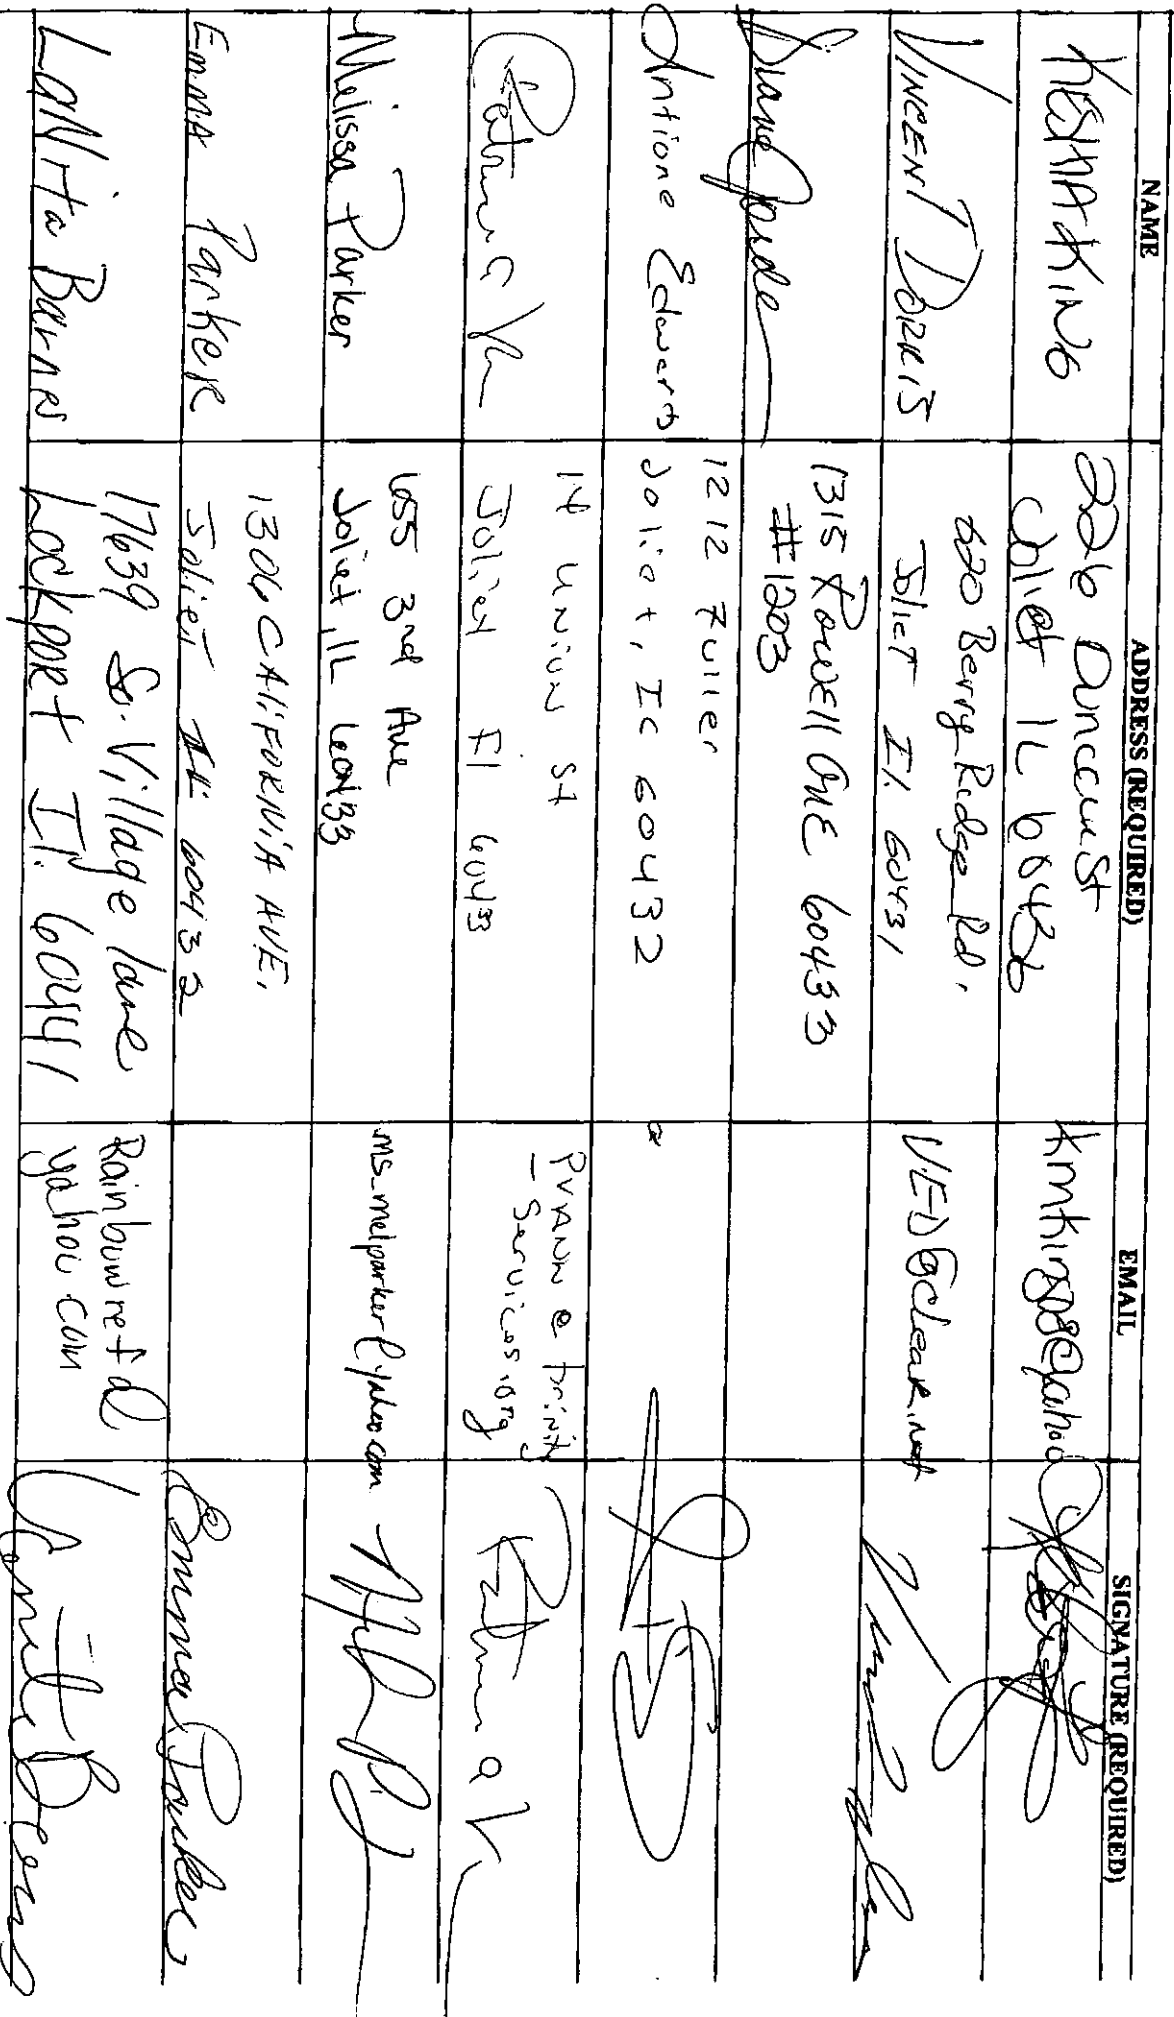 NAME ADDRESS (REQUIRED) EMAIL SIGNATURE (REQUIRED)
KESHA KING
226 Duncan St
Joliet IL 60436
Kmking08@yahoo
VINCENT DORRIS
620 Berry Ridge Rd.
Joliet Il. 60431
VED@clear.net
Diane
1315 Rowell Ave 60433
#1203
Antione Edwards
1212 Fuller
Joliet, IL 60432
Patricia
14 Union St
Joliet Il 60433
PVANN @ trinity
- Services.org
Melissa Parker
655 3rd Ave
Joliet, IL 60433
ms.melparker@yahoo.com
Emma Parker
1306 CALIFORNIA AVE.
Joliet Ill 60432
Emma Parker
LaNita Barnes
17639 So. Village Lane
Lockport Il. 60441
yahoo.com